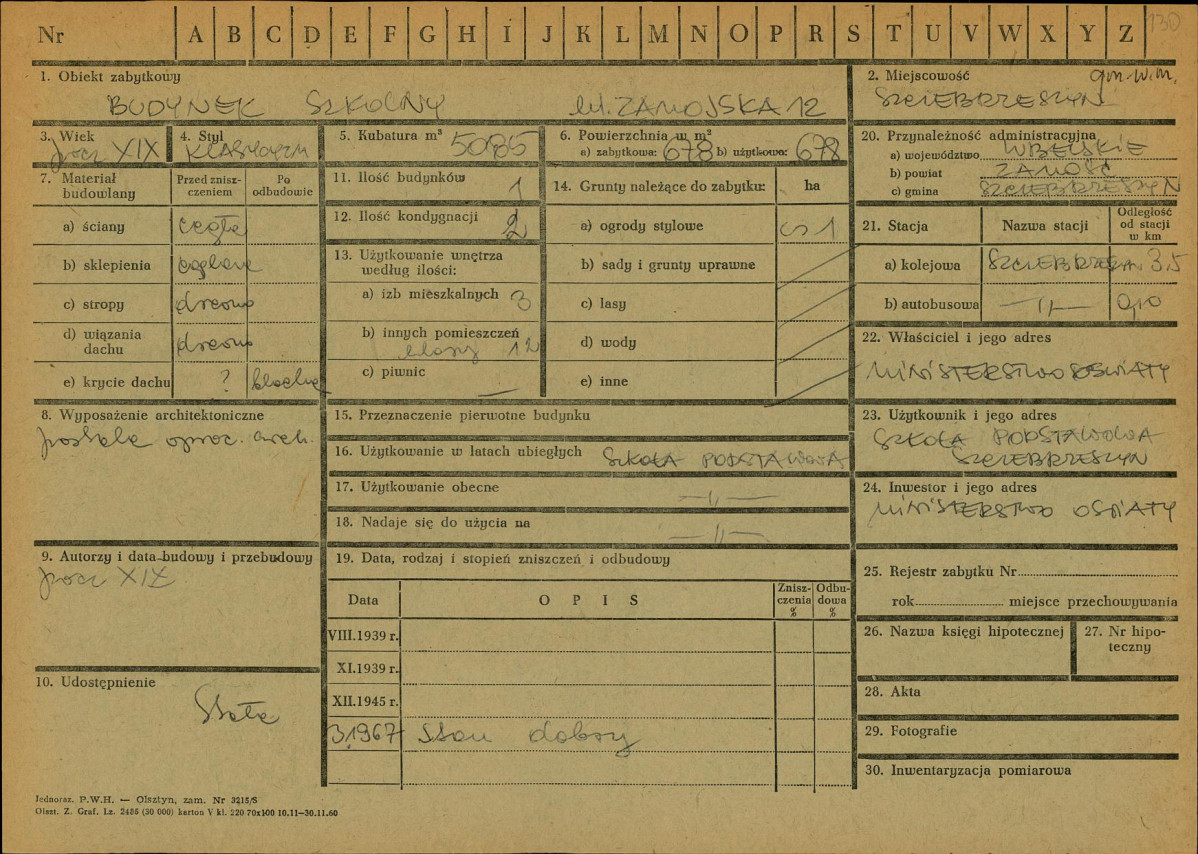 Nr A B C D E F G H I J K L M N O P R S T U V W X Y Z 130
1. Obiekt zabytkowy
BUDYNEK SZKOLNY ul. ZAMOJSKA 12
2. Miejscowość gm. w.m.
SZCZEBRZESZYN
3. Wiek
pocz XIX
4. Styl
KLASYCYZM
5. Kubatura m³ 5085
6. Powierzchnia w m²
a) zabytkowa: 678 b) użytkowa: 678
7. Materiał budowlany
Przed zniszczeniem
Po odbudowie
a) ściany cegła
b) sklepienia ceglane
c) stropy drewno
d) wiązania dachu drewno
e) krycie dachu ? blacha
8. Wyposażenie architektoniczne
9. Autorzy i data budowy i przebudowy
pocz XIX
10. Udostępnienie
Stałe
11. Ilość budynków 1
12. Ilość kondygnacji 2
13. Użytkowanie wnętrza według ilości:
a) izb mieszkalnych 3
b) innych pomieszczeń
klasy 12
c) piwnic —
14. Grunty należące do zabytku: ha
a) ogrody stylowe 1
b) sady i grunty uprawne
c) lasy
d) wody
e) inne
15. Przeznaczenie pierwotne budynku
16. Użytkowanie w latach ubiegłych SZKOŁA PODSTAWOWA
17. Użytkowanie obecne —„—
18. Nadaje się do użycia na —„—
19. Data, rodzaj i stopień zniszczeń i odbudowy
Data O P I S Zniszczenia % Odbudowa %
VIII.1939 r.
XI.1939 r.
XII.1945 r.
3.1967 Stan dobry
20. Przynależność administracyjna
a) województwo LUBELSKIE
b) powiat ZAMOŚĆ
c) gmina SZCZEBRZESZYN
21. Stacja Nazwa stacji Odległość od stacji w km
a) kolejowa SZCZEBRZESZYN 3.5
b) autobusowa —„— 0,10
22. Właściciel i jego adres
MINISTERSTWO OŚWIATY
23. Użytkownik i jego adres
SZKOŁA PODSTAWOWA
SZCZEBRZESZYN
24. Inwestor i jego adres
MINISTERSTWO OŚWIATY
25. Rejestr zabytku Nr
rok miejsce przechowywania
26. Nazwa księgi hipotecznej
27. Nr hipoteczny
28. Akta
29. Fotografie
30. Inwentaryzacja pomiarowa
Jednoraz. P.W.H. — Olsztyn, zam. Nr 3215/S
Olszt. Z. Graf. Lz. 2485 (30 000) karton V kl. 220 70x100 10.11—30.11.60